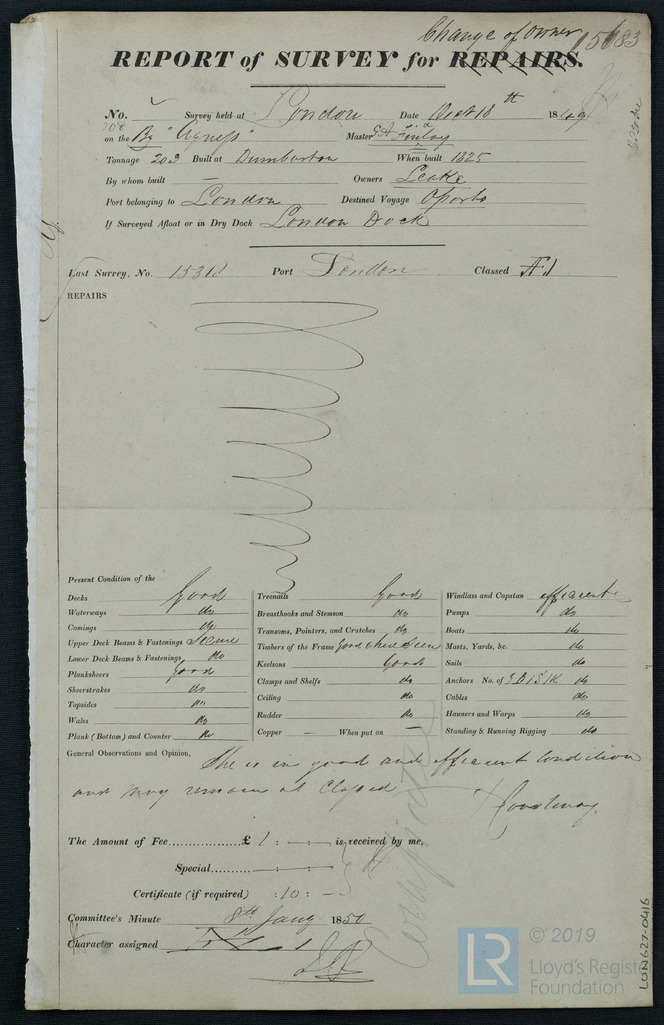 Change of owner 15683
REPORT of SURVEY for REPAIRS.
No. Survey held at London Date Oct 18th 1849
208
on the Bg "Agness" Master Finlay
Tonnage 203 Built at Dumbarton When built 1825
By whom built — Owners Leake
Port belonging to London Destined Voyage Oporto
If Surveyed Afloat or in Dry Dock London Dock
Last Survey, No. 15318 Port London Classed Æ1
REPAIRS
Present Condition of the
Decks Good
Waterways do
Comings do
Upper Deck Beams & Fastenings Secure
Lower Deck Beams & Fastenings do
Planksheers Good
Sheerstrakes do
Topsides do
Wales do
Plank (Bottom) and Counter do
Treenails Good
Breasthooks and Stemson do
Transoms, Pointers, and Crutches do
Timbers of the Frame Good where seen
Keelsons Good
Clamps and Shelfs do
Ceiling do
Rudder do
Copper — When put on —
Windlass and Capstan efficient
Pumps do
Boats do
Masts, Yards, &c. do
Sails do
Anchors No. of 3 B 1 S 1 K do
Cables do
Hawsers and Warps do
Standing & Running Rigging do
General Observations and Opinion, She is in good and efficient condition
and may remain as Classed
The Amount of Fee £ 1 : — : — is received by me,
Special — : —
Certificate (if required) : 10 : —
Committee's Minute 8th Jany 1850
Character assigned Æ 1
LON627-0416
LR © 2019
Lloyd's Register
Foundation